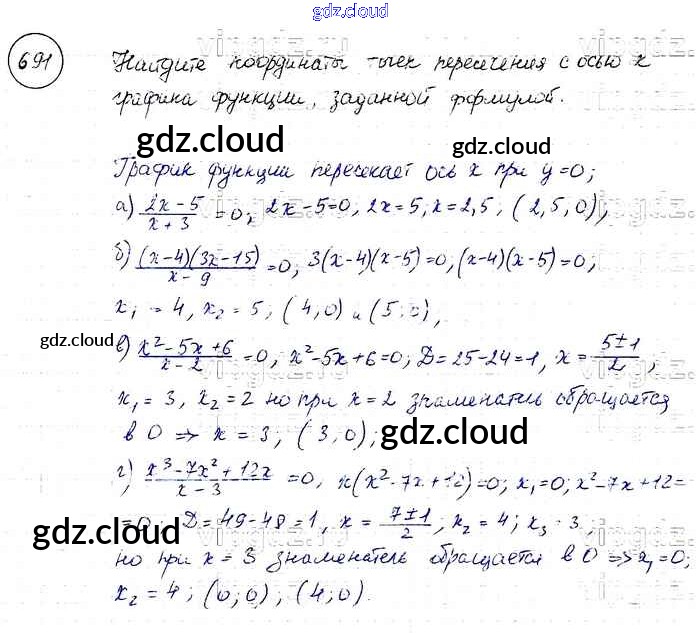 gdz.cloud
691
Найдите координаты точек пересечения с осью x
графика функции, заданной формулой.
gdz.cloud gdz.cloud
График функции пересекает ось x при y=0;
а) (2x-5)/(x+3) =0; 2x-5=0, 2x=5, x=2,5; (2,5,0),
б) (x-4)(3x-15)/(x-9) =0; 3(x-4)(x-5)=0, (x-4)(x-5)=0;
x₁=4, x₂=5; (4;0) и (5;0),
gdz.cloud
в) (x²-5x+6)/(x-2) =0, x²-5x+6=0; D=25-24=1, x= (5±1)/2,
x₁=3, x₂=2 но при x=2 знаменатель обращается
в 0 => x=3; (3,0);
gdz.cloud
г) (x³-7x²+12x)/(x-3) =0, x(x²-7x+12)=0; x₁=0; x²-7x+12=
=0 D=49-48=1, x= (7±1)/2, x₂=4; x₃ 3,
gdz.cloud gdz.cloud
но при x=3 знаменатель обращается в 0 => x₁=0;
x₂=4; (0;0), (4;0).